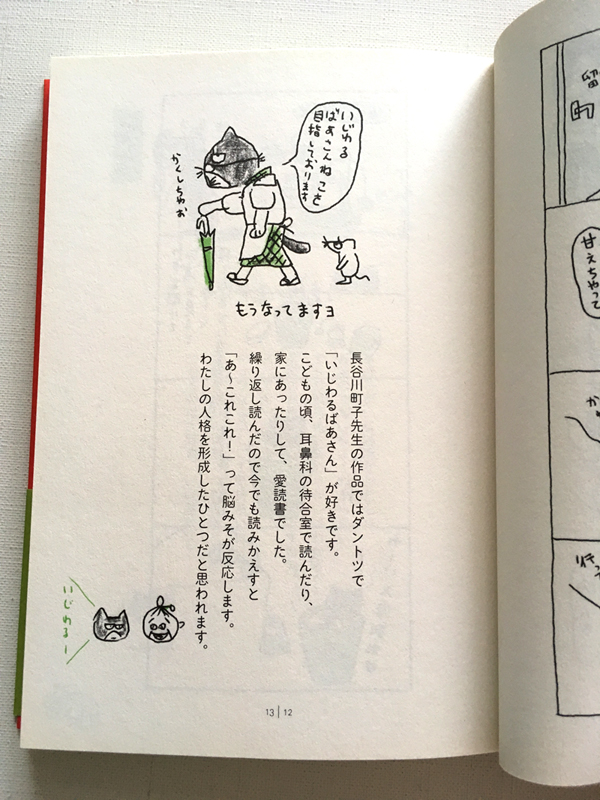 いじわる
ばあさんねこを
目指しております
かくしちゃお
もうなってますヨ
長谷川町子先生の作品ではダントツで
「いじわるばあさん」が好きです。
こどもの頃、耳鼻科の待合室で読んだり、
家にあったりして、愛読書でした。
繰り返し読んだので今でも読みかえすと
「あ〜これこれ!」って脳みそが反応します。
わたしの人格を形成したひとつだと思われます。
いじわるー
13|12
留
甘えちゃって
か